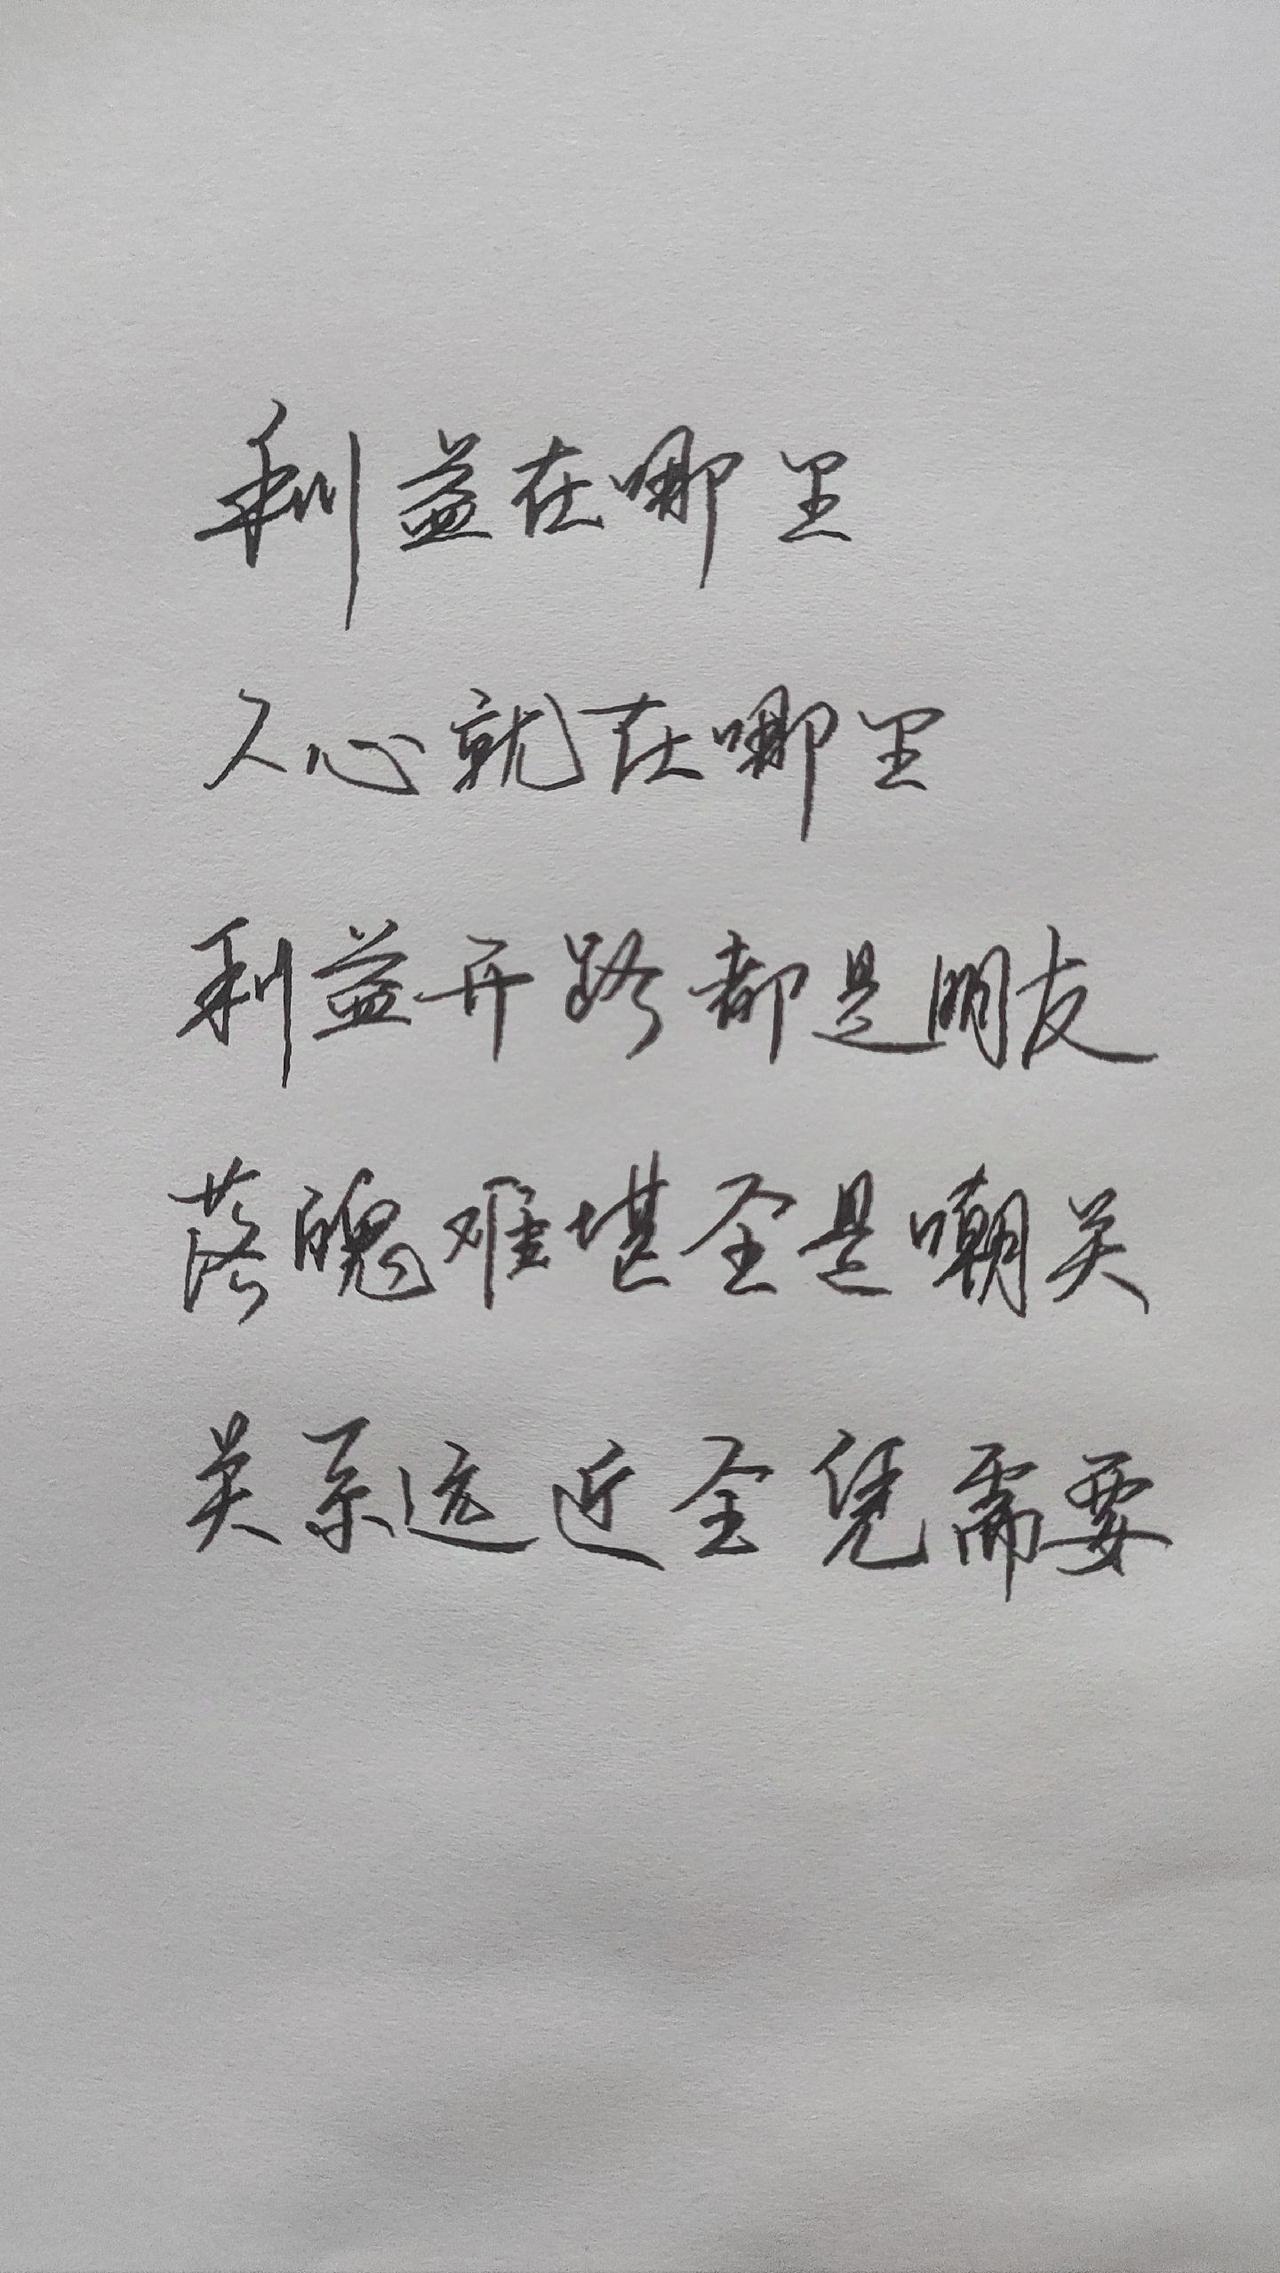 利益在哪里
人心就在哪里
利益开路都是朋友
落魄难堪全是嘲关
关系远近全凭需要